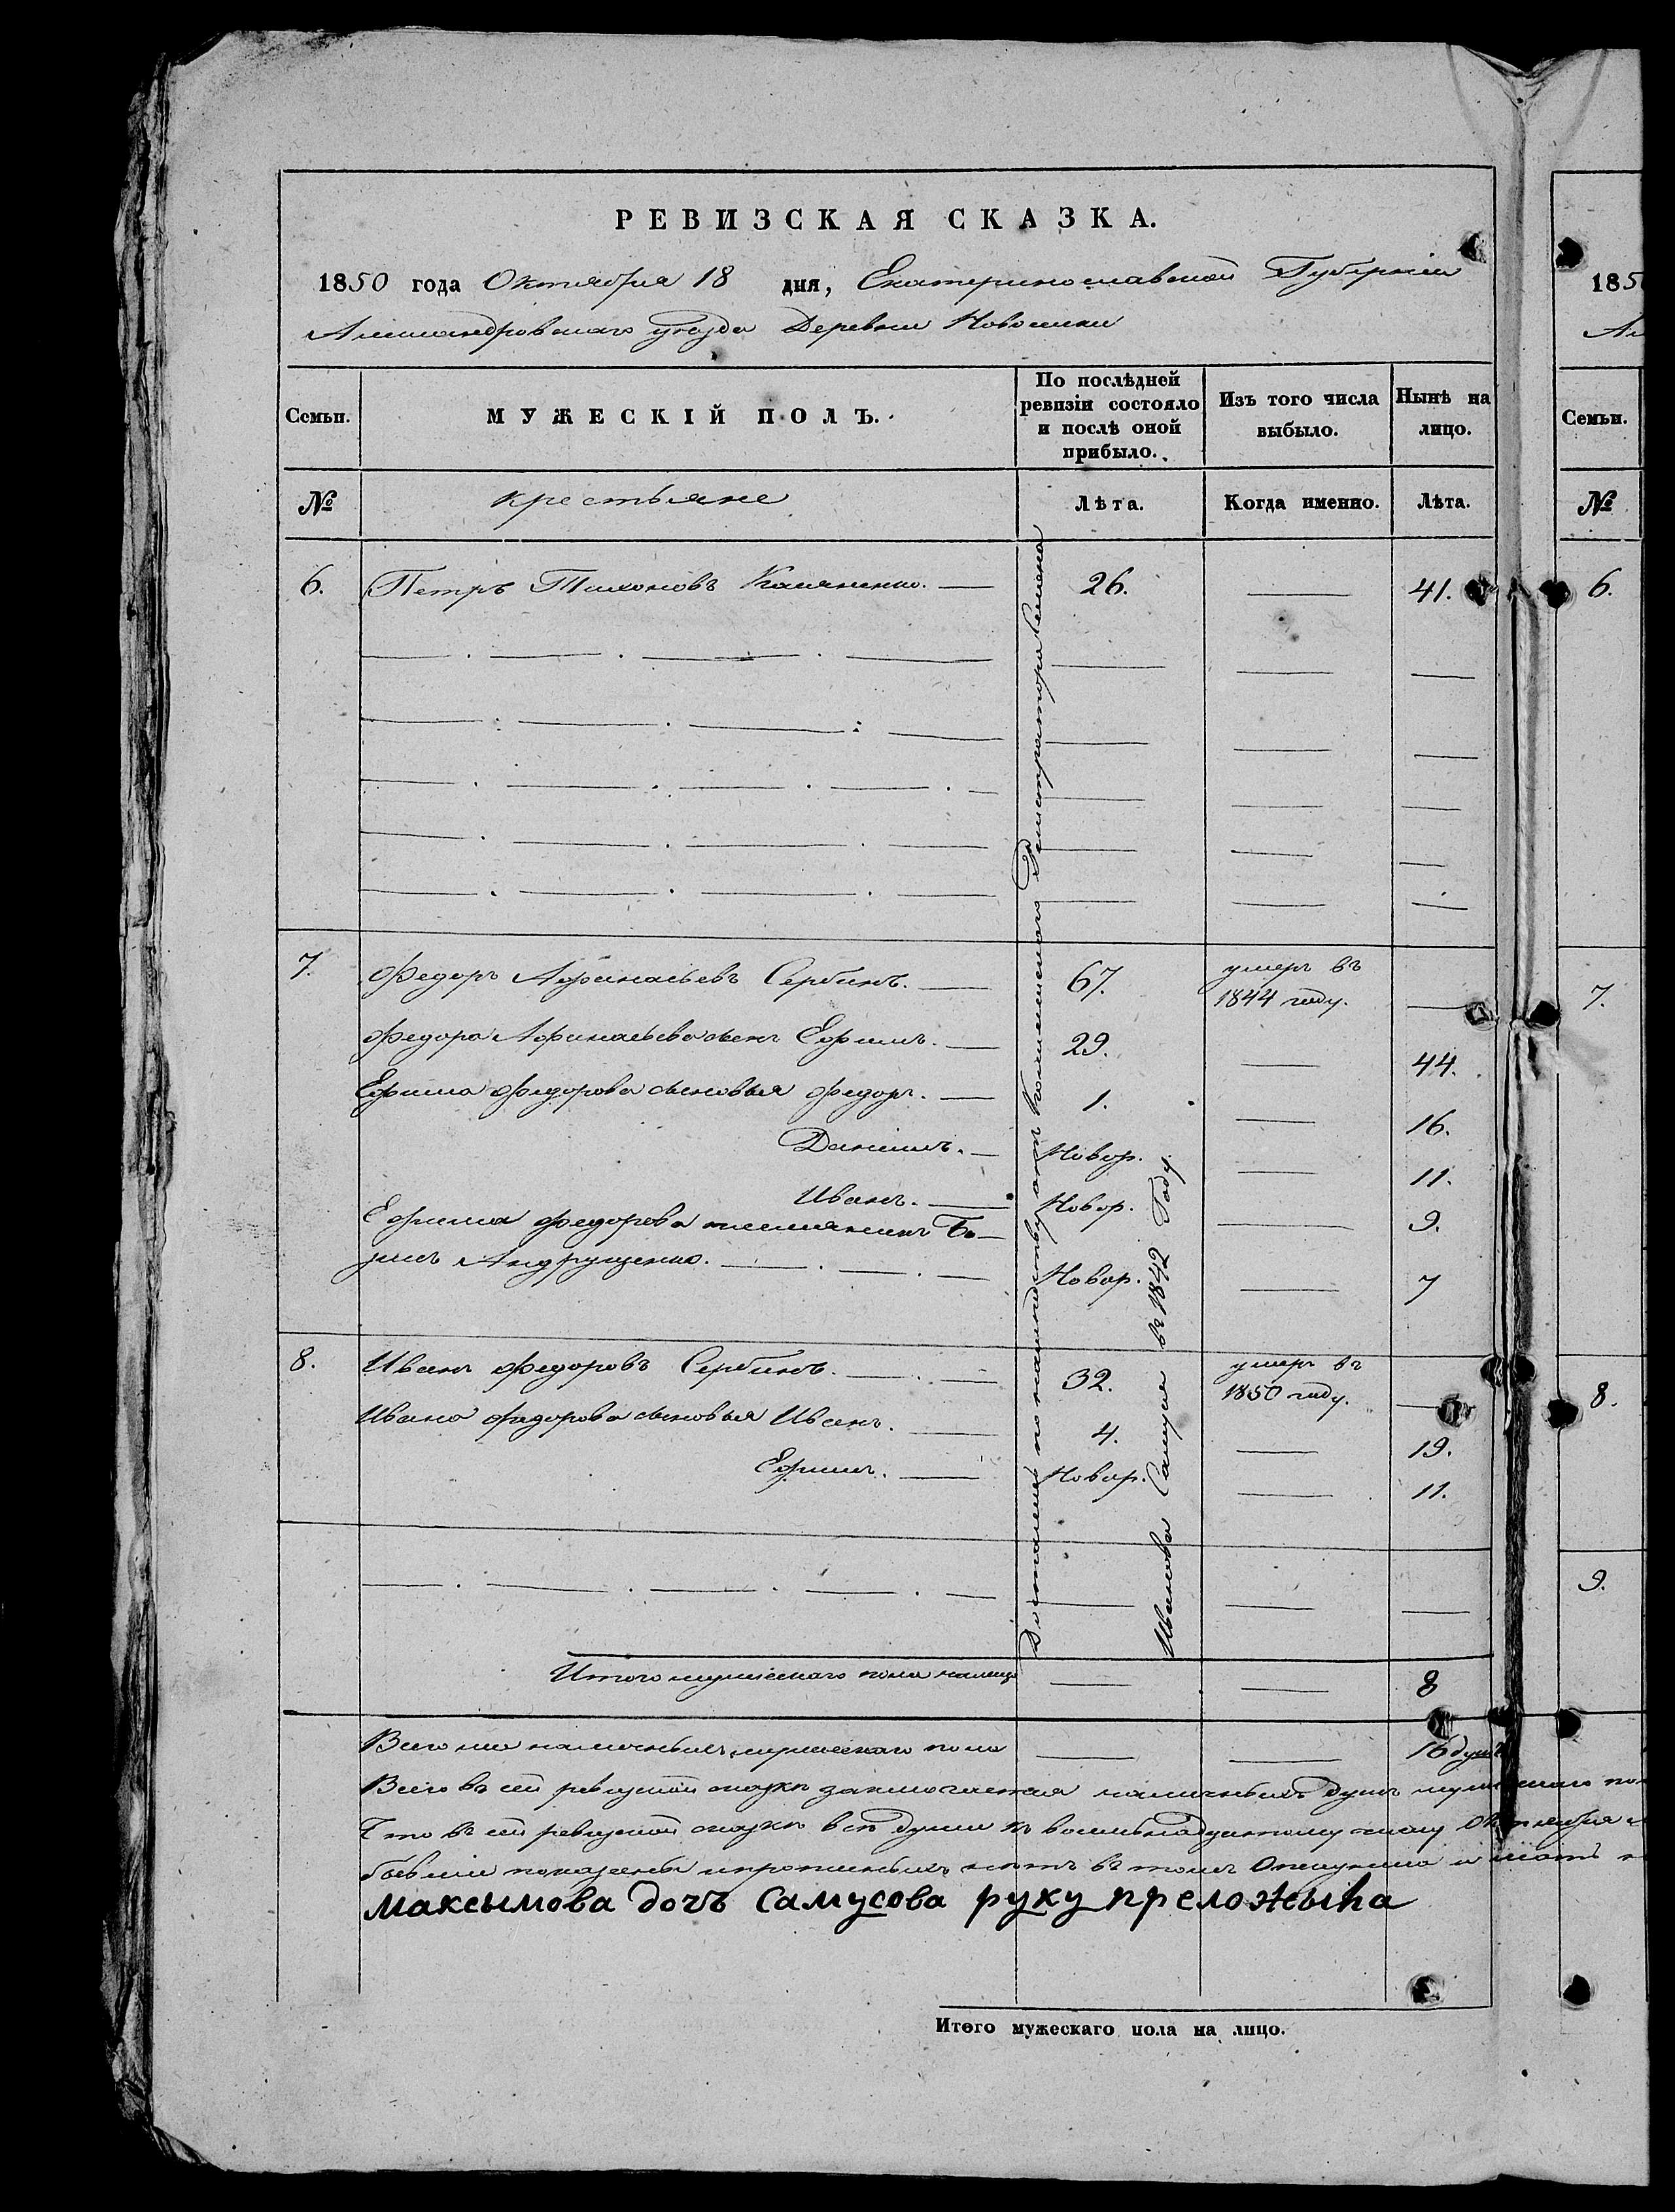 РЕВИЗСКАЯ СКАЗКА.
1850 года Октября 18 дня, Екатеринославской Губернии
Александровскаго уезда Деревни Новоселки
Семьи.
МУЖЕСКІЙ ПОЛЪ.
По послѣдней ревизіи состояло и послѣ оной прибыло.
Изъ того числа выбыло.
Нынѣ на лицо.
№ крестьяне Лѣта. Когда именно. Лѣта.
6. Петръ Тихоновъ 26. 41.
7. Федоръ Афанасьевъ Сербинъ. 67. умеръ въ 1844 году.
Федора Афанасьева сынъ Ефимъ. 29. 44.
Ефима Федорова сыновья Федоръ. 1. 16.
Даніилъ. Новор. 11.
Иванъ. Новор. 9.
Ефима Федорова племянникъ
Андрущенко. Новор. 7
8. Иванъ Федоровъ Сербинъ. 32. умеръ въ 1850 году.
Ивана Федорова сыновья Иванъ. 4. 19.
Ефимъ. Новор. 11.
Достались по наследству отъ Коллежскаго Регистратора Семена
Иванова Самуся въ 1842 Году.
Итого мужескаго пола налицо 8
Всего наличныхъ мужескаго пола 16 душъ
Всего въ сей ревизской сказке заключается наличныхъ душъ
Что въ сей ревизской сказке все души къ восьмнадцатому числу Октября
показаны и прописныхъ нетъ въ томъ Опекунша и мать
максымова дочъ Самусова руку преложыла
Итого мужескаго пола на лицо.
185
Ал
Семьи.
№
6.
7.
8.
9.